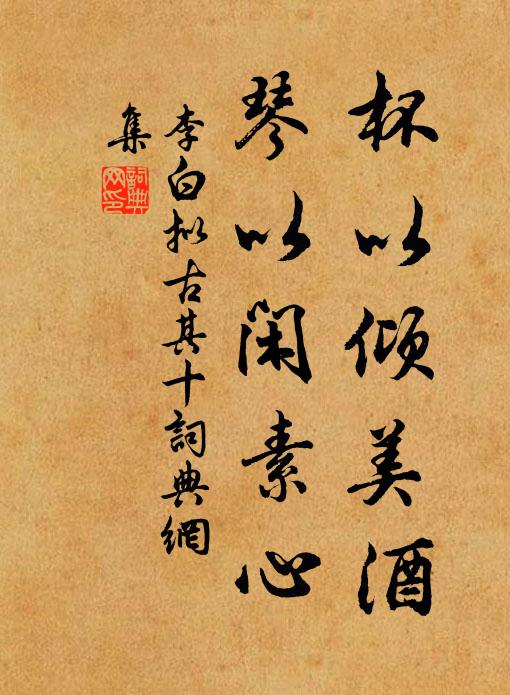 杯以倾美酒
琴以闲素心
李白拟古其十詞典網
集
詞典网印